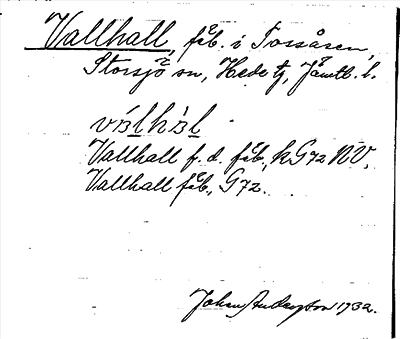 Vallhall, fäb. i Tossåsen,
Storsjö sn, Hede tg, Jämtl. l.
Vallhall f. d. fäb., k G72 NV,
Vallhall fäb., G72.
Johan Anderson 1932.